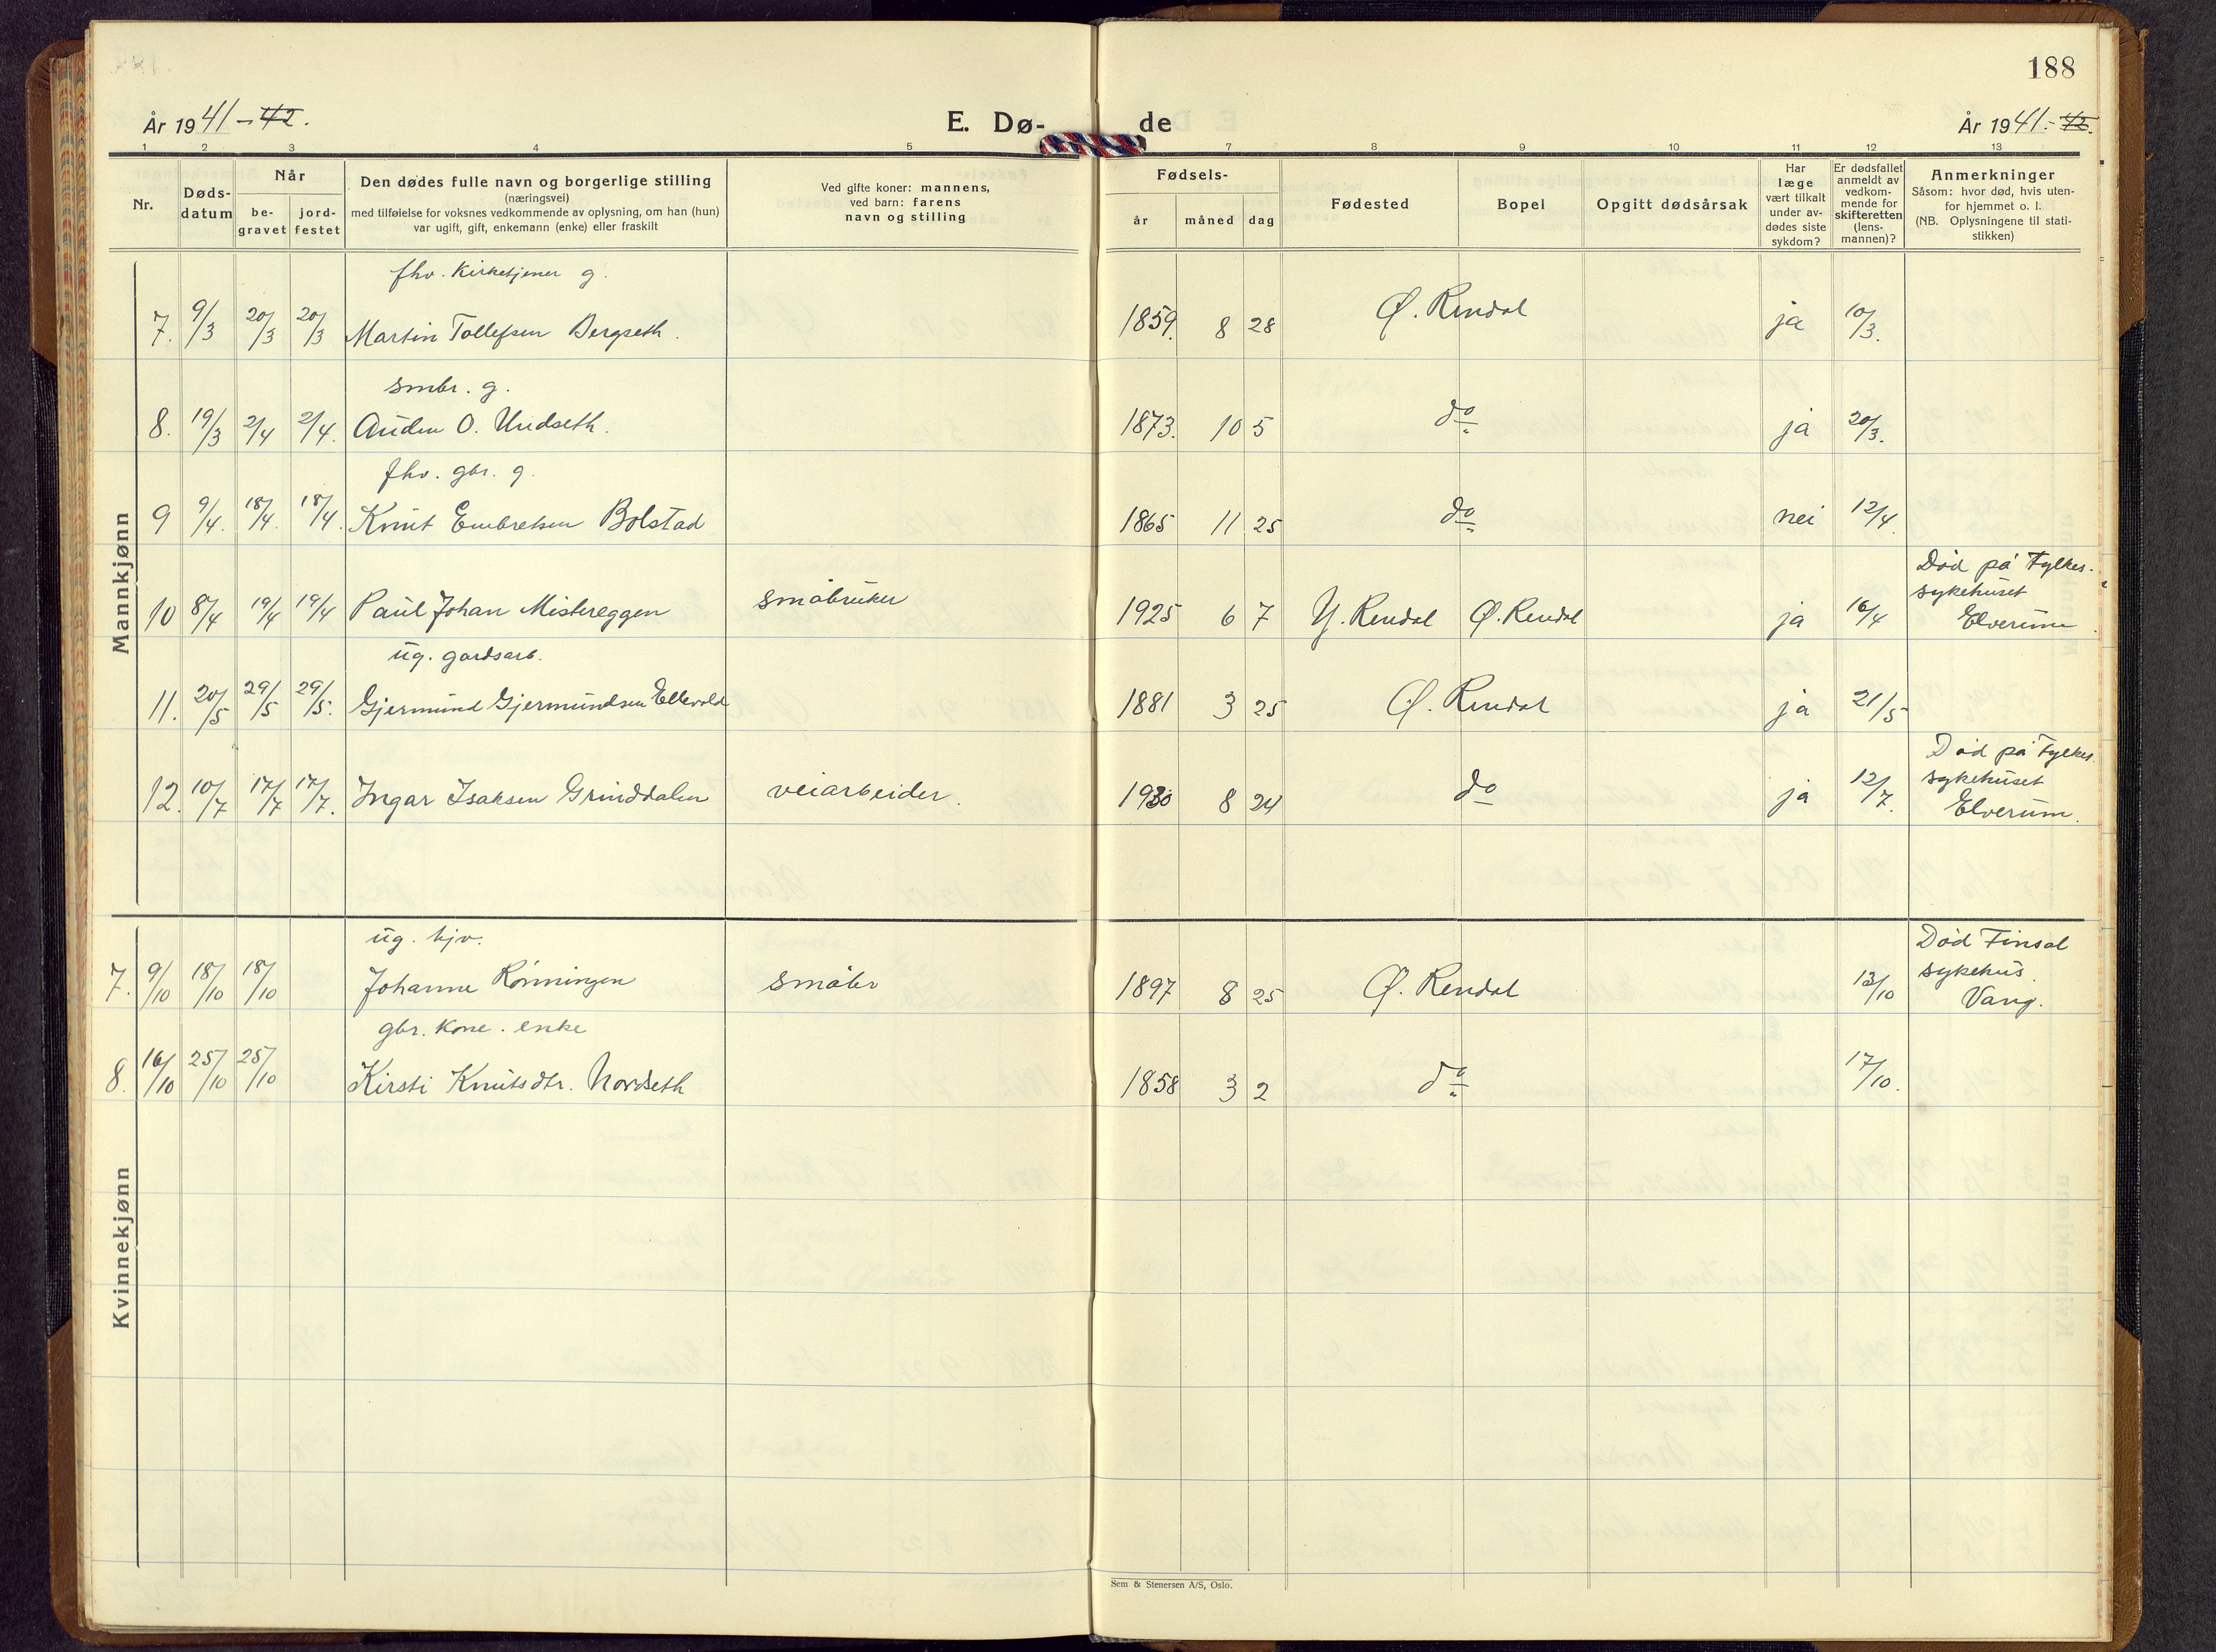 188
År 1941 - 42.
E. Dø-
de
År 1941.- 42.
1 2 3 4 5 7 8 9 10 11 12 13
Nr.
Døds-
datum
Når
be-
gravet
jord-
festet
Den dødes fulle navn og borgerlige stilling
(næringsvei)
med tilføielse for voksnes vedkommende av oplysning, om han (hun)
var ugift, gift, enkemann (enke) eller fraskilt
Ved gifte koner: mannens,
ved barn: farens
navn og stilling
Fødsels-
år måned dag
Fødested
Bopel
Opgitt dødsårsak
Har
læge
vært tilkalt
under av-
dødes siste
sykdom?
Er dødsfallet
anmeldt av
vedkom-
mende for
skifteretten
(lens-
mannen)?
Anmerkninger
Såsom: hvor død, hvis uten-
for hjemmet o. l.
(NB. Oplysningene til stati-
stikken)
Mannkjønn
fhv. Kirketjener g.
7. 9/3 20/3 20/3 Martin Tollefsen Bergseth. 1859. 8 28 Ø. Rendal ja 10/3.
smbr. g.
8. 19/3 2/4 2/4. Auden O. Undseth. 1873. 10 5 do ja 20/3.
fhv. gbr. g.
9 9/4. 18/4. 18/4. Knut Embretsen Bolstad 1865 11 25 do nei 12/4.
10 8/4 19/4 19/4 Paul Johan Mistereggen småbruker 1925 6 7 Y. Rendal Ø. Rendal ja 16/4
Død på Fylkes-
sykehuset
Elverum
ug. gardsarb.
11. 20/5 29/5 29/5. Gjermund Gjermundsen Ellevold 1881 3 25 Ø. Rendal ja 21/5
12. 10/7 17/7 17/7. Ingar Isaksen Grinddalen veiarbeider. 1930 8 24 do ja 12/7.
Død på Fylkes.
sykehuset
Elverum.
Kvinnekjønn
ug. hjv.
7. 9/10 18/10 18/10 Johanne Rønningen småbr 1897 8 25 Ø. Rendal 13/10
Død Finsal
sykehus.
Vang.
gbr. kone. enke
8. 16/10 25/10 25/10 Kirsti Knutsdtr. Nordseth 1858 3 2 do 17/10.
Sem & Stenersen A/S, Oslo.